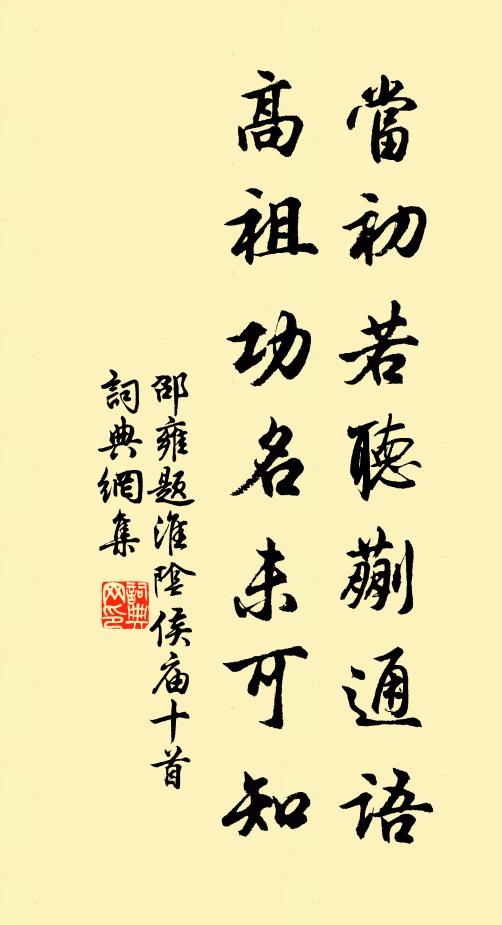 當初若聽蒯通語
高祖功名未可知
邵雍題淮陰侯庙十首
詞典網集
詞典网印